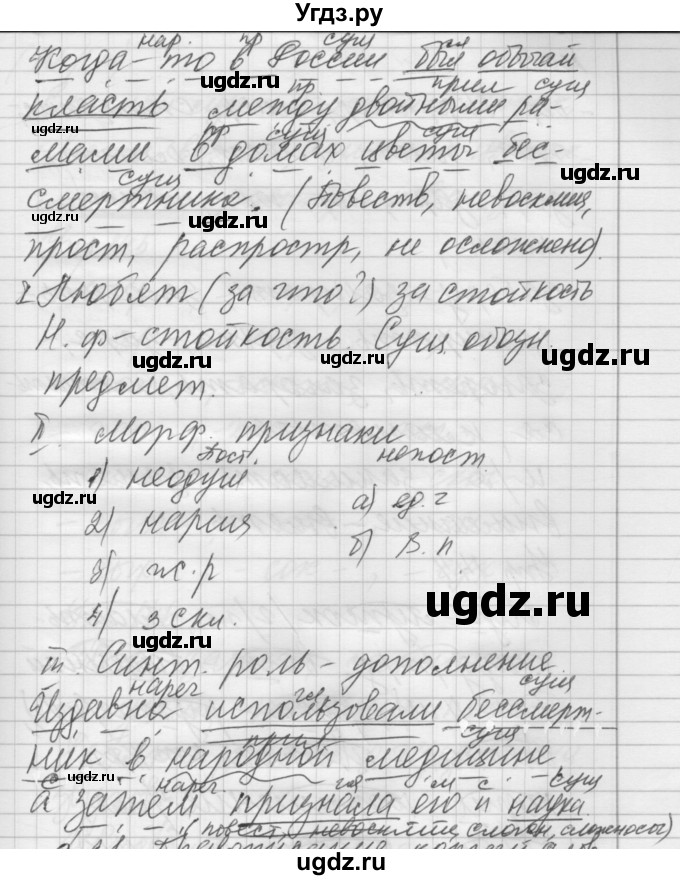 Угдз.ру
нар. пр сущ
Когда-то в России был обычай
пр прил сущ
класть между двойными ра-
пр сущ сущ
мами в домах цветы бес-
сущ
смертника. (Повеств, невосклиц,
прост, распростр, не осложнено).
I Любят (за что?) за стойкость
Н. ф – стойкость. Сущ, обозн.
предмет.
II. Морф. признаки
Пост. непост.
1) неодуш а) ед. ч
2) нариц б) В. п
3) ж. р
4) 3 скл.
III. Синт. роль – дополнение
нареч гл сущ
Издавна использовали бессмерт-
прил сущ
ник в народной медицине
с нареч гл м с сущ
а затем признала его и наука.
(повест, невосклиц, сложн, сложносоч)
ugdz.ru